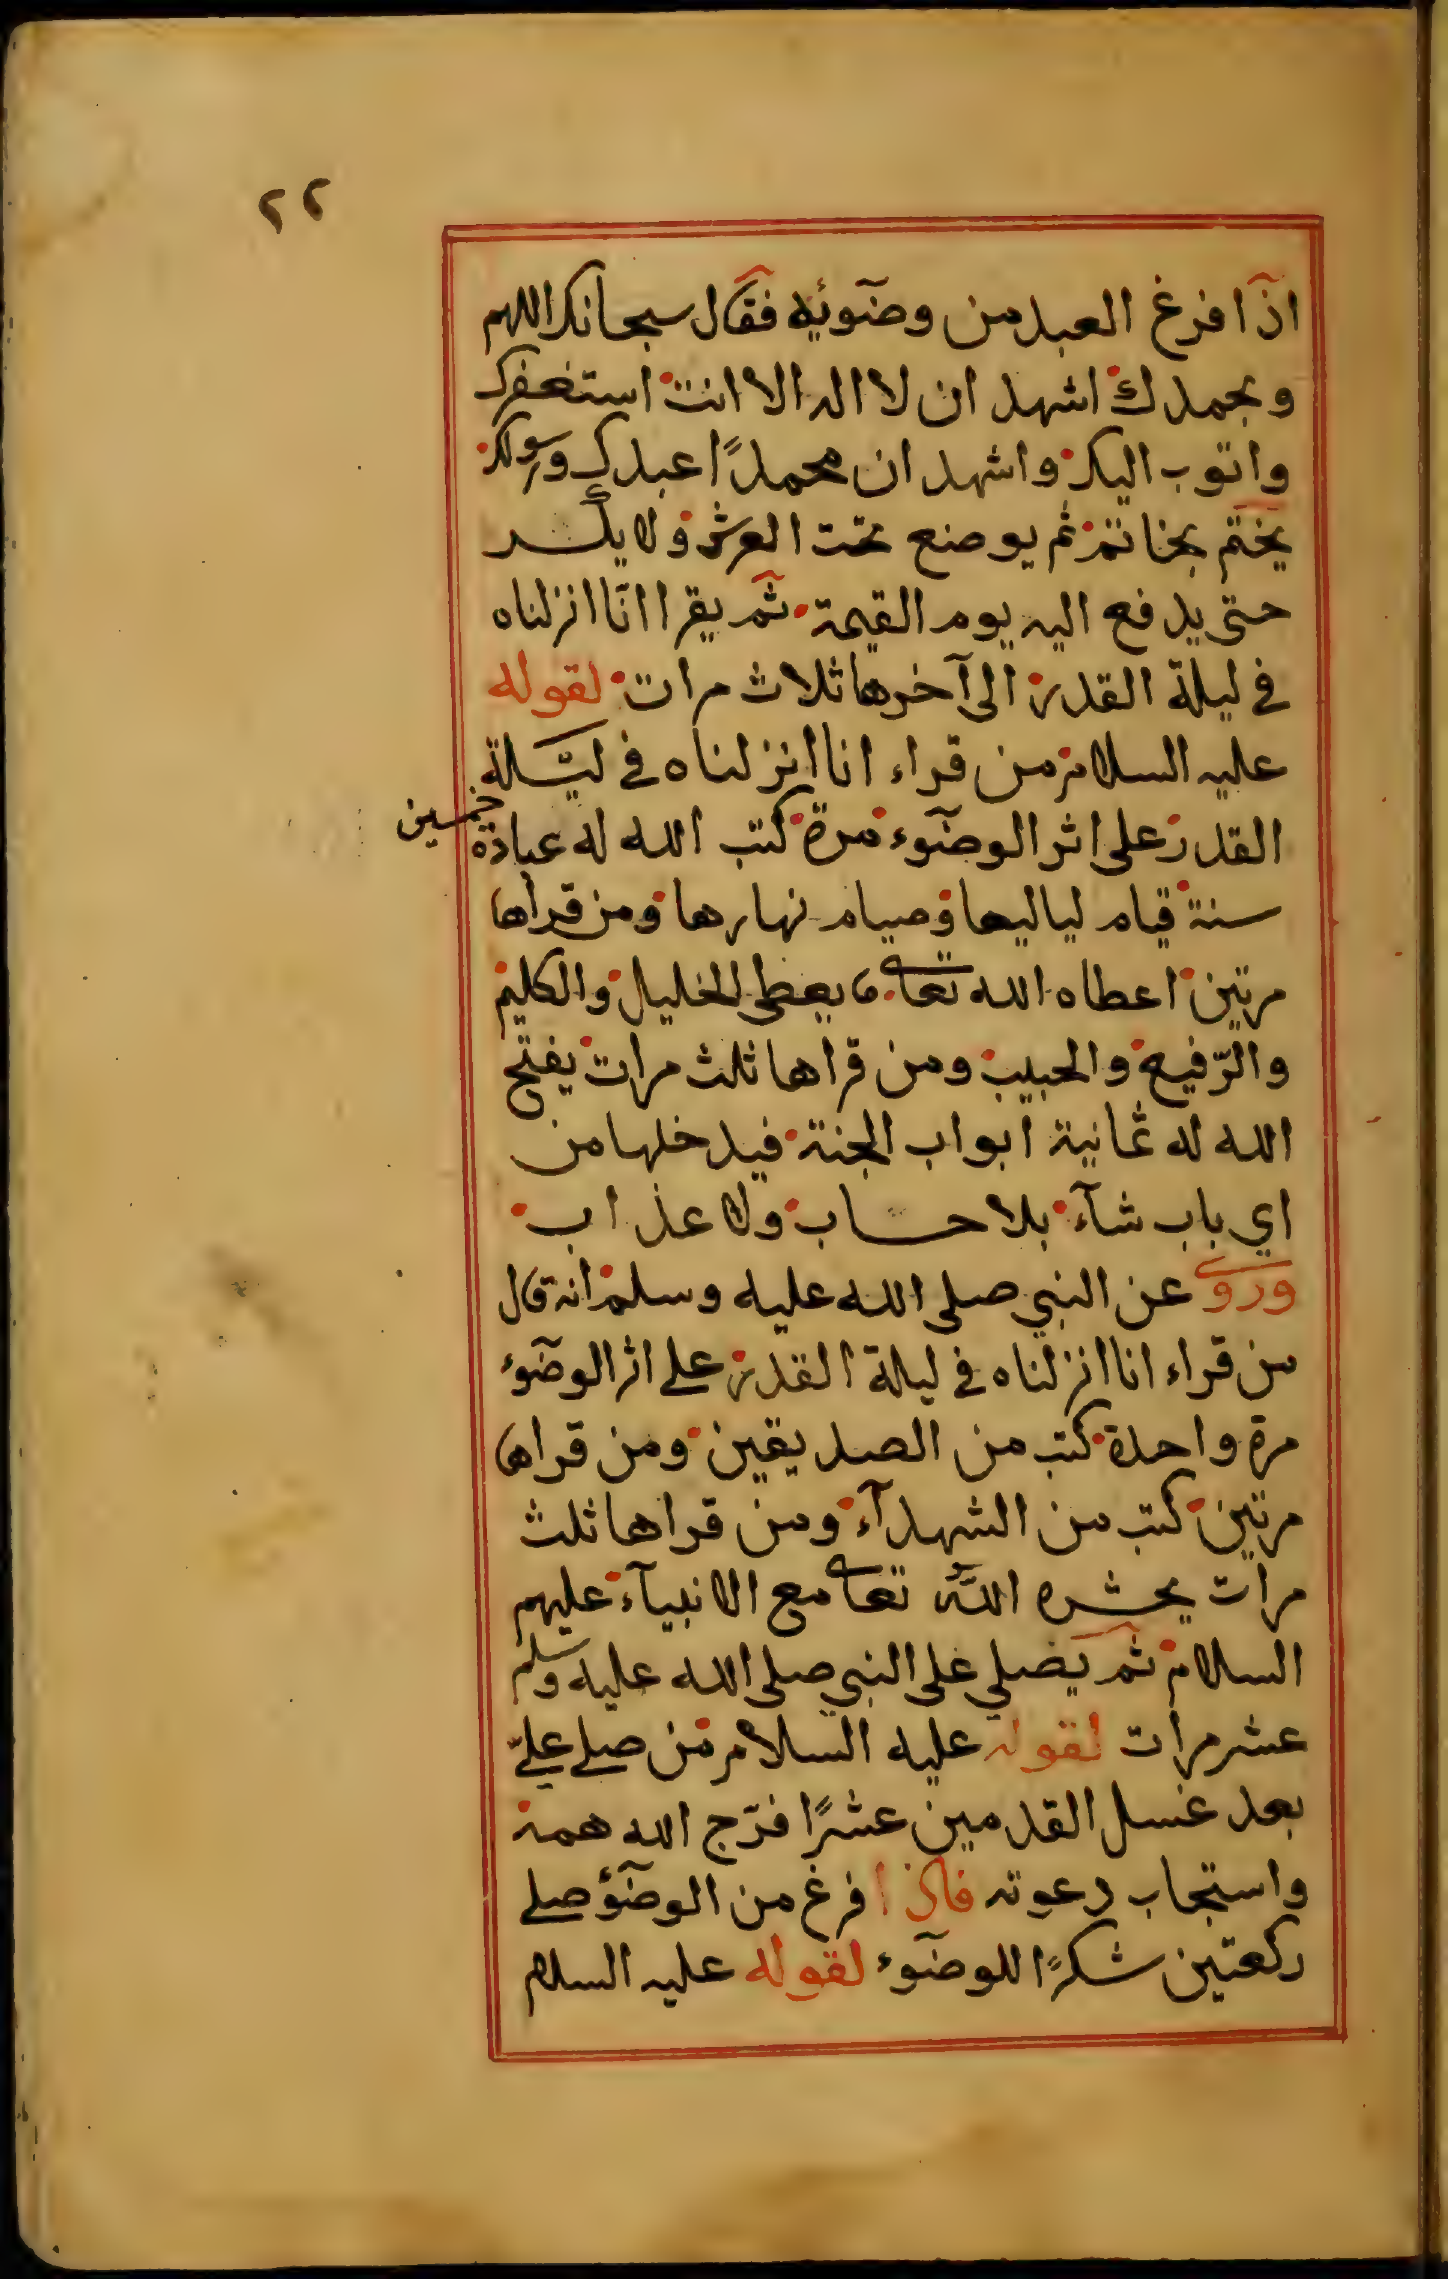 ٢٢
اذا فرغ العبد من وضوئه فقال سبحانك اللهم
وبحمدك اشهد ان لا اله الا انت استغفرك
واتوب اليك واشهد ان محمدًا عبدك ورسولك
يختم بخاتم ثم يوضع تحت العرش ولا يكسر
حتى يدفع اليه يوم القيمة ثم يقرا انّا انزلناه
في ليلة القدر الى آخرها ثلاث مرات لقوله
عليه السلام من قراء انا انزلناه في ليلة
القدر على اثر الوضوء مرة كتب الله له عبادة خمسين
سنة قيام لياليها وصيام نهارها ومن قراها
مرتين اعطاه الله تعالى ما يعطى الخليل والكليم
والرّفيع والحبيب ومن قراها ثلث مرات يفتح
الله له ثمانية ابواب الجنة فيدخلها من
اي باب شآء بلا حساب ولا عذاب
وروى عن النبي صلى الله عليه وسلم انه قال
من قراء انا انزلناه في ليلة القدر على اثر الوضوء
مرة واحدة كتب من الصديقين ومن قراها
مرتين كتب من الشهدآء ومن قراها ثلث
مرات يحشره اللّه تعالى مع الانبيآء عليهم
السلام ثم يصلي على النبي صلى الله عليه وسلم
عشر مرات لقوله عليه السلام من صلى عليّ
بعد غسل القدمين عشرًا فرّج الله همه
واستجاب دعوته فاذا فرغ من الوضوء صلى
ركعتين شكرًا للوضوء لقوله عليه السلام